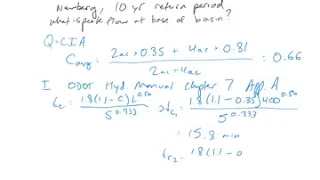 Newberg, 10 yr return period
what is peak flow at base of basin?
Q=CIA
Cavg = 2ac * 0.35 + 4ac * 0.81 / 2ac + 4ac = 0.66
I ODOT Hyd. Manual Chapter 7 App. A
tc = 18(1.1 - C)L^0.50 / S^0.333 → tc1 = 18(1.1 - 0.35)400^0.50 / 5^0.333
= 15.8 min
tc2 = 18(1.1 - 0